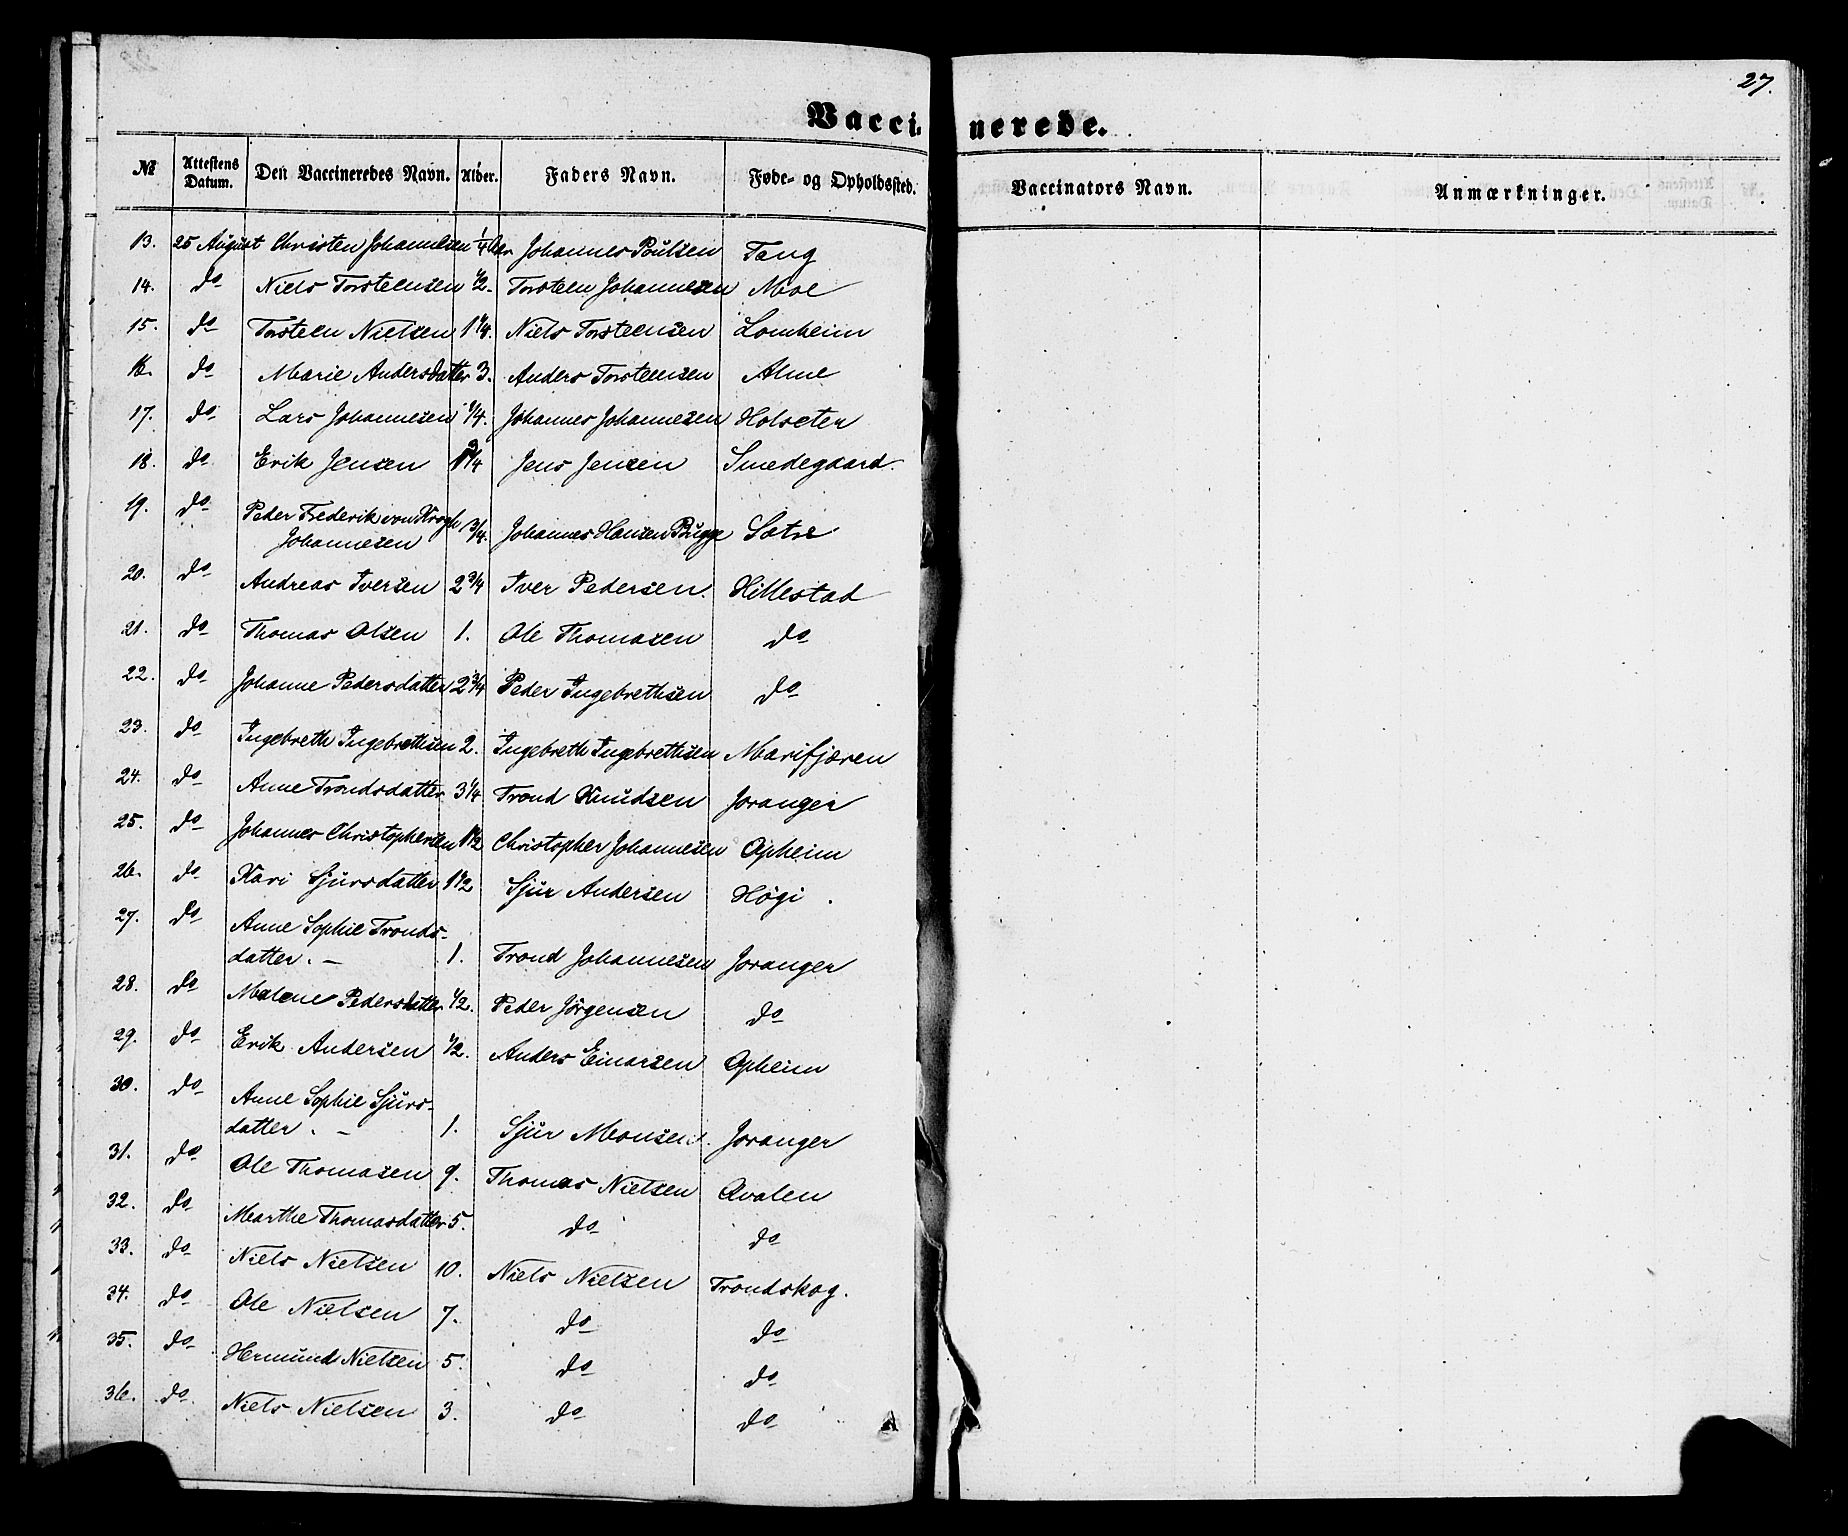 27.
Vaccinerede.
№ Attestens Datum. Den Vaccineredes Navn. Alder. Faders Navn. Føde- og Opholdssted. Vaccinators Navn. Anmærkninger.
13. 25 August Christen Johannesen 1/4 Johannes Poulsen Tang
14. do Niels Torsteensen 1/2. Torsteen Johannesen Moe
15. do Torsteen Nielsen 1 1/4. Niels Torsteensen Lomheim
16. do Marie Andersdatter 3. Anders Torsteensen Alme
17. do Lars Johannesen 1/4. Johannes Johannesen Holseter
18. do Erik Jensen 3/4 Jens Jensen Smedegaard.
19. do Peder Frederik von Krogh
Johannesen 3/4. Johannes Hansen Bugge Sætre
20. do Andreas Iversen 2 3/4 Iver Pedersen. Hillestad
21. do Thomas Olsen 1. Ole Thomasen do
22. do Johanne Pedersdatter 2 3/4 Peder Ingebrethsen do
23. do Ingebreth Ingebrethsen 2. Ingebreth Ingebrethsen Marifjæren
24. do Anne Trondsdatter 3 1/4 Trond Knudsen Joranger
25. do Johannes Christophersen 1 1/2 Christopher Johannesen Opheim
26. do Kari Sjursdatter 1 1/2 Sjur Andersen Høgi.
27. do Anne Sophie Tronds-
datter. – 1. Trond Johannesen Joranger
28. do Malene Pedersdatter 1/2. Peder Jørgensen do
29. do Erik Andersen 1/2. Anders Einarsen Opheim
30. do Anne Sophie Sjurs-
datter. – 1. Sjur Monsen. Joranger
31. do Ole Thomasen 9. Thomas Nielsen Qvalen
32. do Marthe Thomasdatter 5. do do
33. do Niels Nielsen 10. Niels Nielsen Trondskog.
34. do Ole Nielsen 7. do do
35. do Hermund Nielsen 5. do do
36. do Niels Nielsen 3. do do